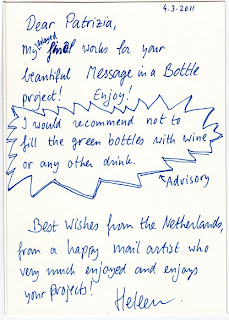 4.3.2011
Dear Patrizia,
My delayed final works for your
beautiful Message in a Bottle
project! Enjoy!
I would recommend not to
fill the green bottles with wine
or any other drink.
Advisory
Best Wishes from the Netherlands,
from a happy mail artist who
very much enjoyed and enjoys
your projects!
Heleen